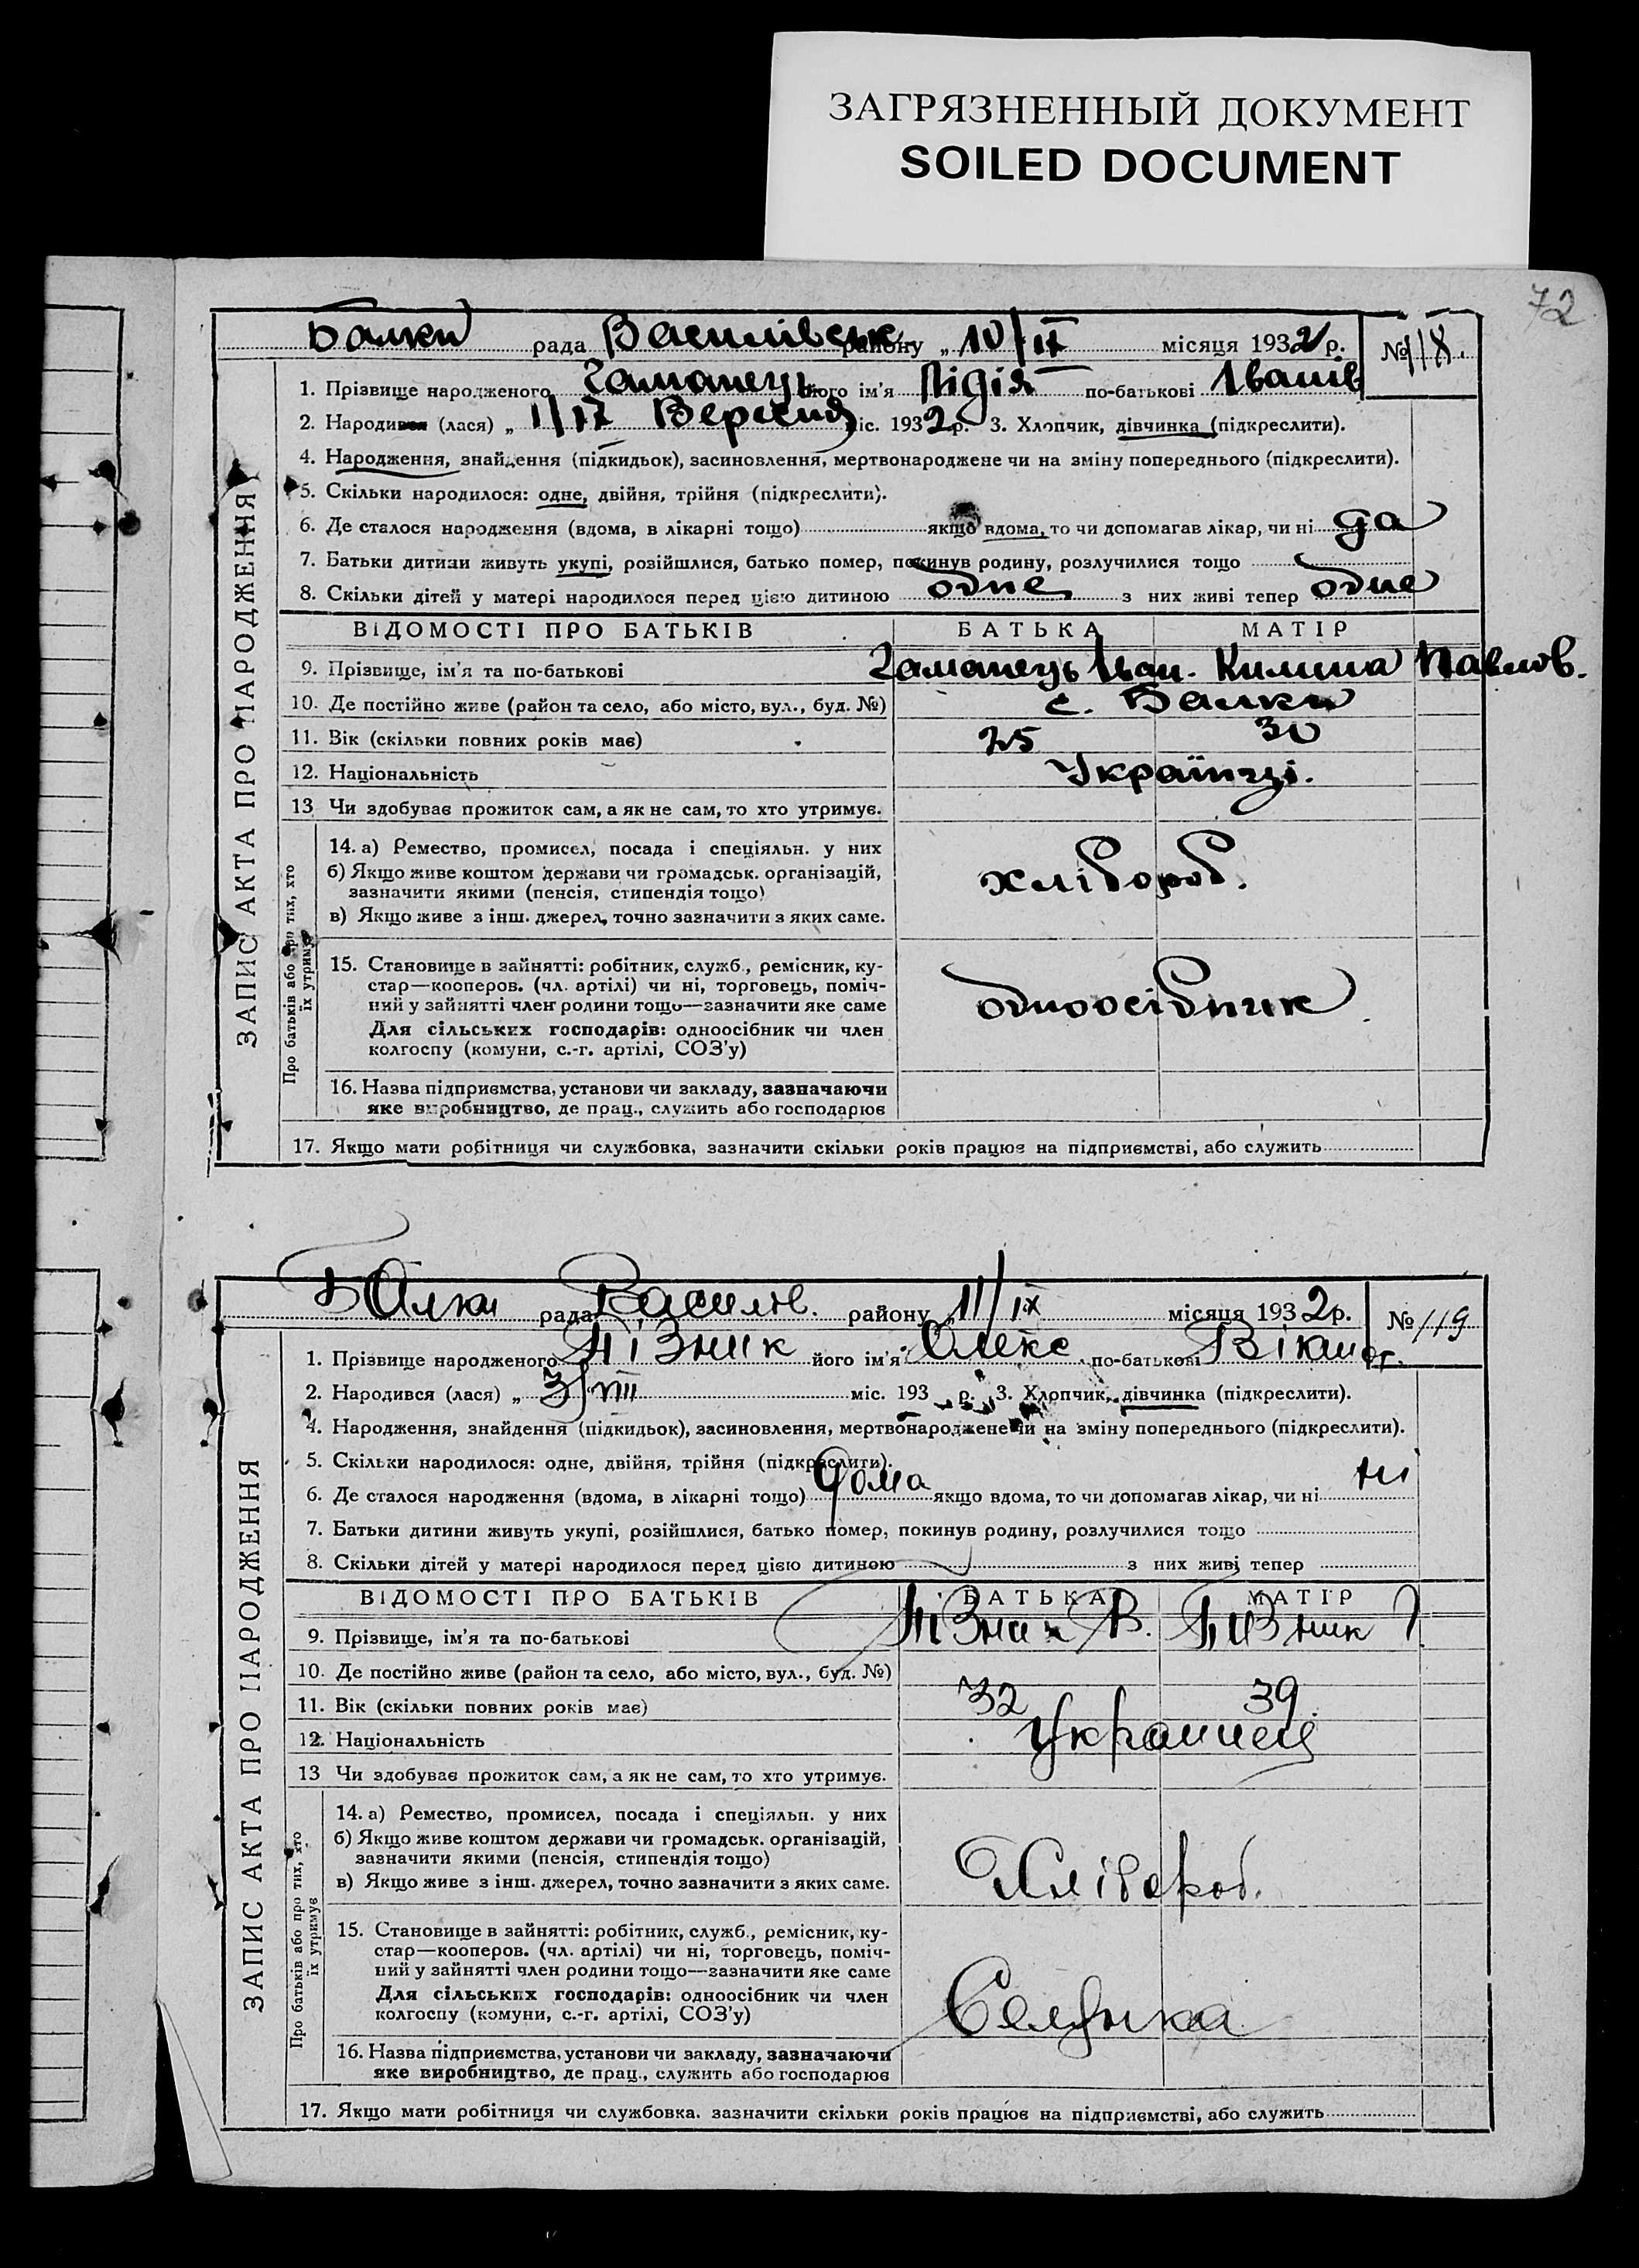 ЗАГРЯЗНЕННЫЙ ДОКУМЕНТ
SOILED DOCUMENT
72
Балки рада Василівськ. району „ 10/ІХ місяця 1932 р. № 118.
1. Прізвище народженого Гаманець його ім'я Лідія по-батькові Іванів
2. Народився (лася) „ 1/ІХ Вересня міс. 1932 р. 3. Хлопчик, дівчинка (підкреслити).
4. Народження, знайдення (підкидьок), засиновлення, мертвонароджене чи на зміну попереднього (підкреслити).
5. Скільки народилося: одне, двійня, трійня (підкреслити).
6. Де сталося народження (вдома, в лікарні тощо) якщо вдома, то чи допомагав лікар, чи ні да
7. Батьки дитини живуть укупі, розійшлися, батько помер, покинув родину, розлучилися тощо
8. Скільки дітей у матері народилося перед цією дитиною одне з них живі тепер одне
ВІДОМОСТІ ПРО БАТЬКІВ БАТЬКА МАТІР
9. Прізвище, ім'я та по-батькові Гаманець Іван. Килина Павлов.
10. Де постійно живе (район та село, або місто, вул., буд. №) с. Балки
11. Вік (скільки повних років має) 25 30
12. Національність Українці.
13 Чи здобуває прожиток сам, а як не сам, то хто утримує.
14. а) Ремество, промисел, посада і спеціяльн. у них
б) Якщо живе коштом держави чи громадськ. організацій,
зазначити якими (пенсія, стипендія тощо)
хлібороб.
в) Якщо живе з інш. джерел, точно зазначити з яких саме.
15. Становище в зайнятті: робітник, служб., ремісник, ку-
стар—кооперов. (чл. артілі) чи ні, торговець, поміч-
ний у зайнятті член родини тощо—зазначити яке саме
одноосібник
Для сільських господарів: одноосібник чи член
колгоспу (комуни, с.-г. артілі, СОЗ'у)
16. Назва підприємства, установи чи закладу, зазначаючи
яке виробництво, де прац., служить або господарює
17. Якщо мати робітниця чи службовка, зазначити скільки років працює на підприємстві, або служить
ЗАПИС АКТА ПРО НАРОДЖЕННЯ
Про батьків або про тих, хто
їх утримує
Балки рада Василів. району „ 11/ІХ місяця 1932 р. № 119
1. Прізвище народженого Пізник його ім'я Олекс по-батькові
2. Народився (лася) „ 3/VIII міс. 193 р. 3. Хлопчик, дівчинка (підкреслити).
4. Народження, знайдення (підкидьок), засиновлення, мертвонароджене чи на зміну попереднього (підкреслити).
5. Скільки народилося: одне, двійня, трійня (підкреслити).
6. Де сталося народження (вдома, в лікарні тощо) Дома якщо вдома, то чи допомагав лікар, чи ні ні
7. Батьки дитини живуть укупі, розійшлися, батько помер, покинув родину, розлучилися тощо
8. Скільки дітей у матері народилося перед цією дитиною з них живі тепер
ВІДОМОСТІ ПРО БАТЬКІВ БАТЬКА МАТІР
9. Прізвище, ім'я та по-батькові Пізник В. Пизник
10. Де постійно живе (район та село, або місто, вул., буд. №)
11. Вік (скільки повних років має) 32 39
12. Національність Украинец
13 Чи здобуває прожиток сам, а як не сам, то хто утримує.
14. а) Ремество, промисел, посада і спеціяльн. у них
б) Якщо живе коштом держави чи громадськ. організацій,
зазначити якими (пенсія, стипендія тощо)
Хлібороб.
в) Якщо живе з інш. джерел, точно зазначити з яких саме.
15. Становище в зайнятті: робітник, служб., ремісник, ку-
стар—кооперов. (чл. артілі) чи ні, торговець, поміч-
ний у зайнятті член родини тощо—зазначити яке саме
Для сільських господарів: одноосібник чи член
колгоспу (комуни, с.-г. артілі, СОЗ'у)
16. Назва підприємства, установи чи закладу, зазначаючи
яке виробництво, де прац., служить або господарює
17. Якщо мати робітниця чи службовка. зазначити скільки років працює на підприємстві, або служить
ЗАПИС АКТА ПРО НАРОДЖЕННЯ
Про батьків або про тих, хто
їх утримує